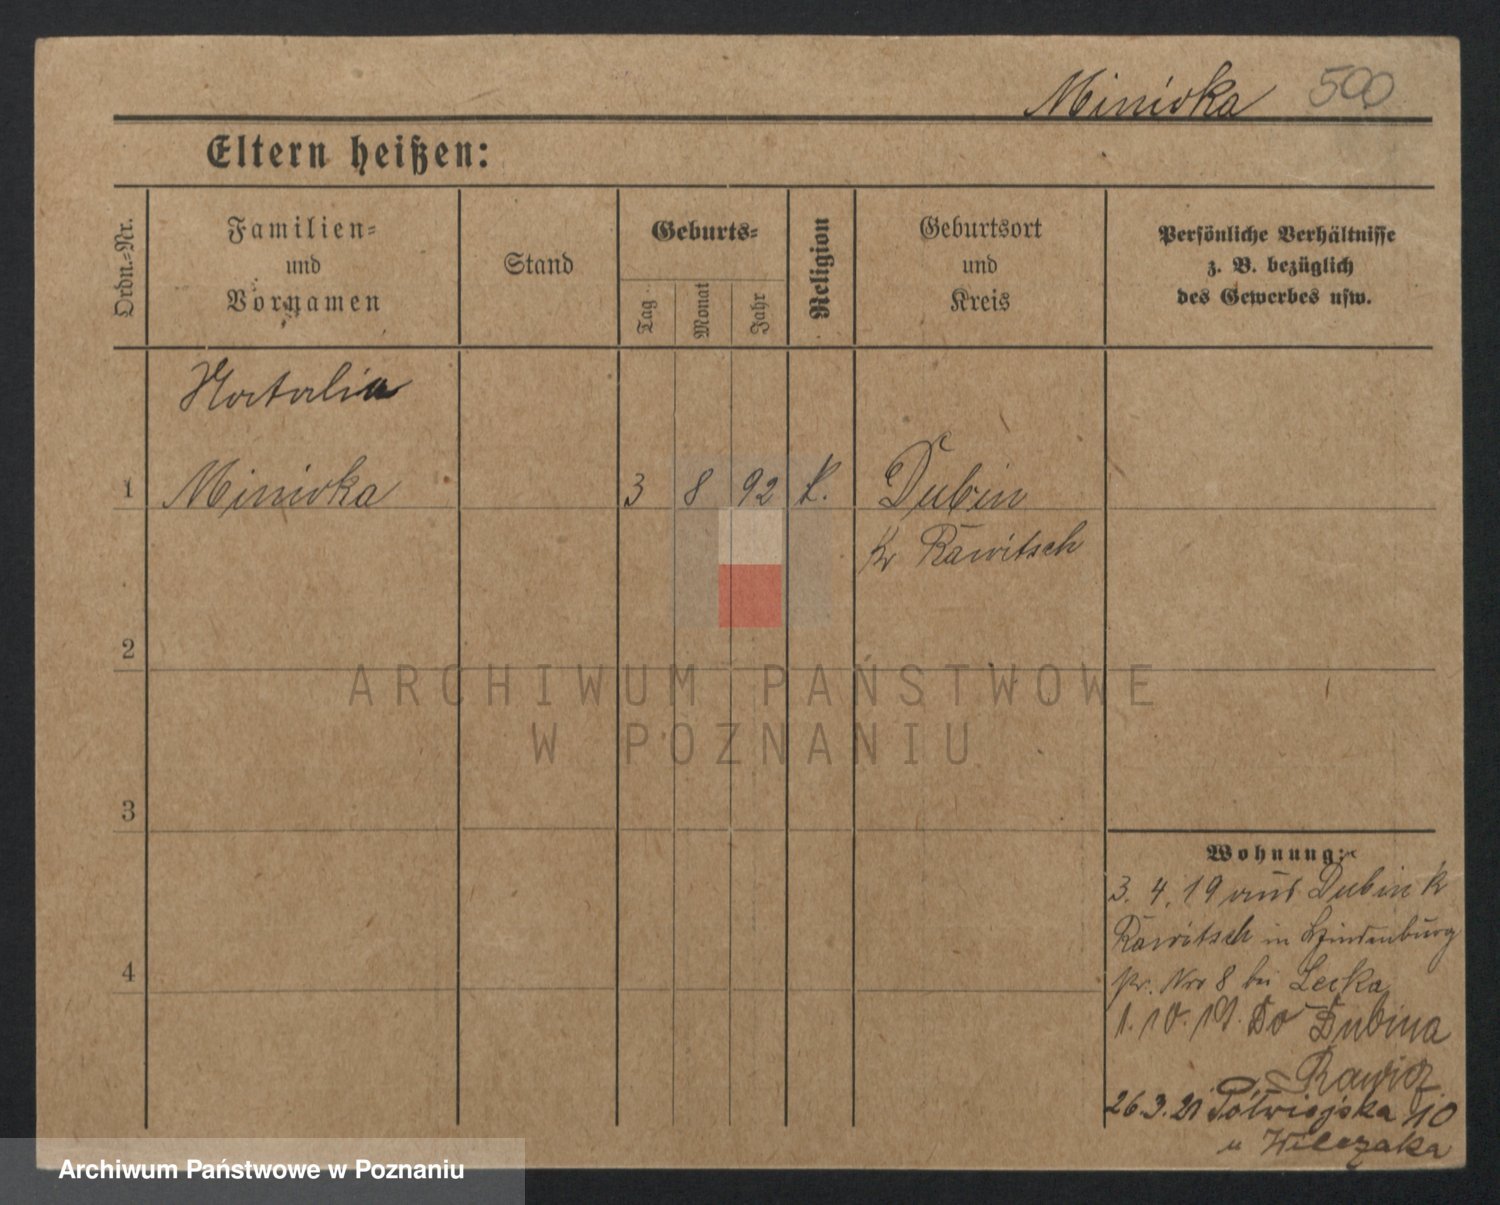 Minivka 500
Eltern heißen:
Ordn.-Nr.
Familien-
und
Vornamen
Stand
Geburts-
Tag
Monat
Jahr
Religion
Geburtsort
und
Kreis
Persönliche Verhältnisse
z. B. bezüglich
des Gewerbes usw.
Natalia
1 Minivka 3 8 92 k. Dubin
Kr Rawitsch
2
3
4
Wohnung:
3. 4. 19 aus Dubin Kr
Rawitsch in Hindenburg
Nro 8 bei Lecka
1. 10. 19. Do Dubina
Rawicz
26.3.21 Półwiejska 10
u Wilczaka
ARCHIWUM PAŃSTWOWE
W POZNANIU
Archiwum Państwowe w Poznaniu